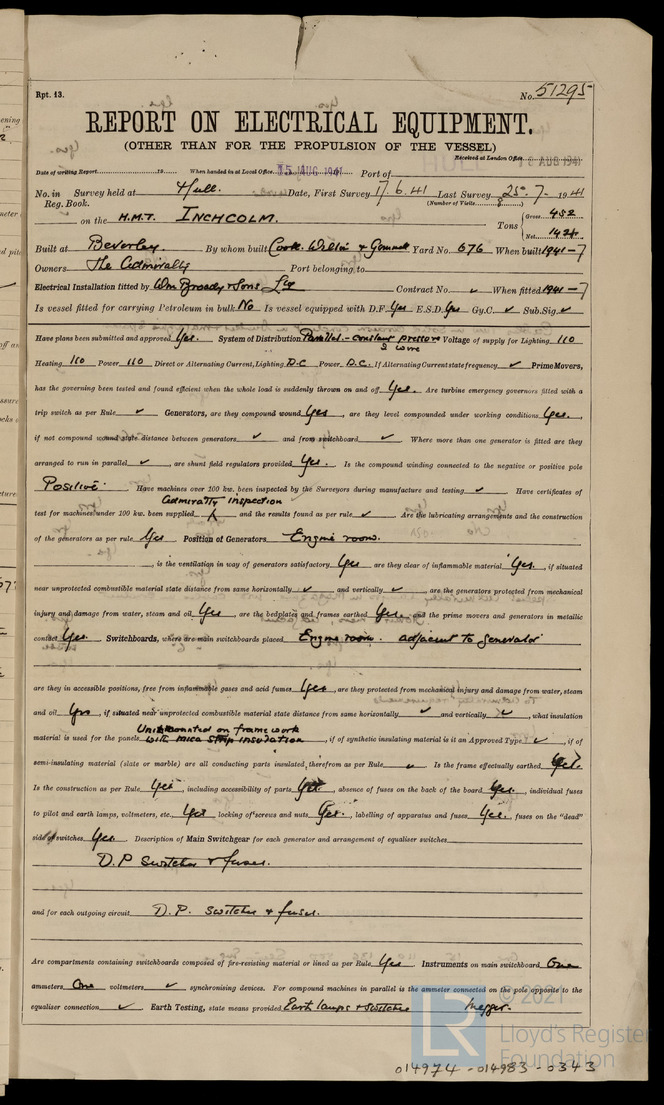 Rpt. 13.
No. 51295
REPORT ON ELECTRICAL EQUIPMENT.
(OTHER THAN FOR THE PROPULSION OF THE VESSEL)
Received at London Office 18 AUG 1941
Date of writing Report 19 When handed in at Local Office 15 AUG 1941 Port of HULL
No. in Survey held at Hull. Date, First Survey 17.6.41 Last Survey 25.7.1941
Reg. Book. (Number of Visits 8)
on the H.M.T. INCHCOLM. Tons { Gross 452
Net 142
Built at Beverley. By whom built Cook Welton & Gemmell Yard No. 676 When built 1941-7
Owners The Admiralty Port belonging to
Electrical Installation fitted by Wm Broady & Sons Contract No. ✓ When fitted 1941-7
Is vessel fitted for carrying Petroleum in bulk No Is vessel equipped with D.F. Yes E.S.D. Yes Gy.C. ✓ Sub.Sig. ✓
Have plans been submitted and approved Yes. System of Distribution Parallel - constant pressure 2 wire Voltage of supply for Lighting 110
Heating 110 Power 110 Direct or Alternating Current, Lighting D.C. Power D.C. If Alternating Current state frequency ✓ Prime Movers,
has the governing been tested and found efficient when the whole load is suddenly thrown on and off Yes. Are turbine emergency governors fitted with a
trip switch as per Rule ✓ Generators, are they compound wound Yes, are they level compounded under working conditions Yes.,
if not compound wound state distance between generators ✓ and from switchboard ✓ Where more than one generator is fitted are they
arranged to run in parallel ✓, are shunt field regulators provided Yes. Is the compound winding connected to the negative or positive pole
Positive. Have machines over 100 kw. been inspected by the Surveyors during manufacture and testing ✓ Have certificates of
Admiralty inspection
test for machines under 100 kw. been supplied and the results found as per rule ✓ Are the lubricating arrangements and the construction
of the generators as per rule Yes Position of Generators Engine room.
, is the ventilation in way of generators satisfactory Yes are they clear of inflammable material Yes., if situated
near unprotected combustible material state distance from same horizontally ✓ and vertically ✓, are the generators protected from mechanical
injury and damage from water, steam and oil Yes, are the bedplates and frames earthed Yes and the prime movers and generators in metallic
contact Yes. Switchboards, where are main switchboards placed Engine room. adjacent to generator
are they in accessible positions, free from inflammable gases and acid fumes Yes, are they protected from mechanical injury and damage from water, steam
and oil Yes, if situated near unprotected combustible material state distance from same horizontally ✓ and vertically ✓, what insulation
Units mounted on frame work
material is used for the panels with mica strip insulation, if of synthetic insulating material is it an Approved Type ✓, if of
semi-insulating material (slate or marble) are all conducting parts insulated therefrom as per Rule ✓ Is the frame effectually earthed Yes.
Is the construction as per Rule Yes, including accessibility of parts Yes, absence of fuses on the back of the board Yes, individual fuses
to pilot and earth lamps, voltmeters, etc. Yes locking of screws and nuts Yes., labelling of apparatus and fuses Yes, fuses on the "dead"
side of switches Yes. Description of Main Switchgear for each generator and arrangement of equaliser switches
D.P Switches & fuses.
and for each outgoing circuit D.P. switches & fuses.
Are compartments containing switchboards composed of fire-resisting material or lined as per Rule Yes Instruments on main switchboard One
ammeters One voltmeters ✓ synchronising devices. For compound machines in parallel is the ammeter connected on the pole opposite to the
equaliser connection ✓ Earth Testing, state means provided Earth lamps & switches Megger.
© 2021
LR
Lloyd's Register
Foundation
014974-014983-0343